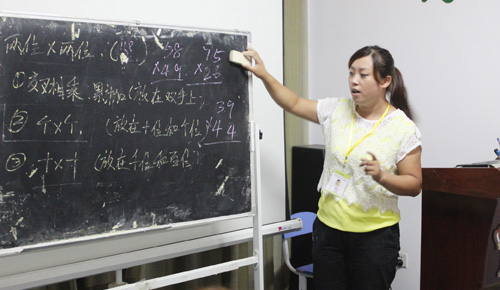 两位×两位:
58 75
×49 ×23
①交叉相乘 累加(放在
39
②个×个 (放在十位和个位)
×44
③十×十 (放在千位和百位)